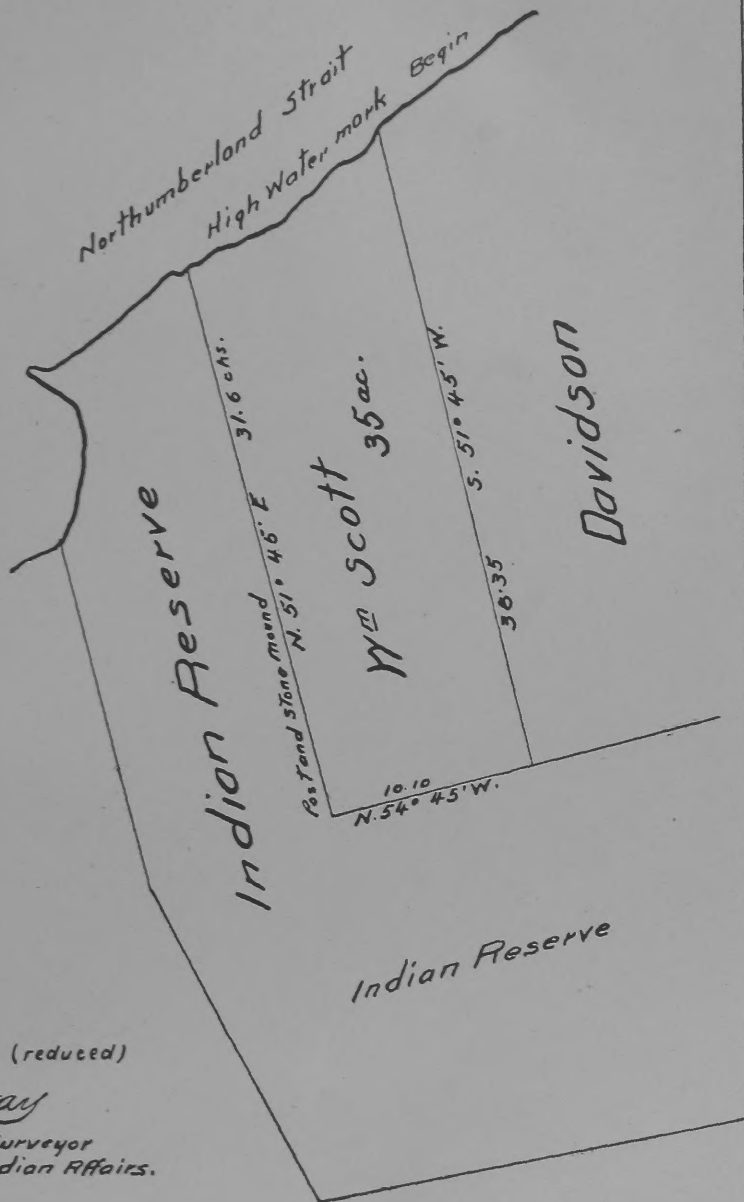 Northumberland Strait
High Water mark Begin
31.6 chs.
N. 51° 45' E
Post and Stone mound
Indian Reserve
Wm Scott
35 ac.
S. 51° 45' W.
36.35
Davidson
10.10
N. 54° 45' W.
Indian Reserve
(reduced)
ay
urveyor
dian Affairs.